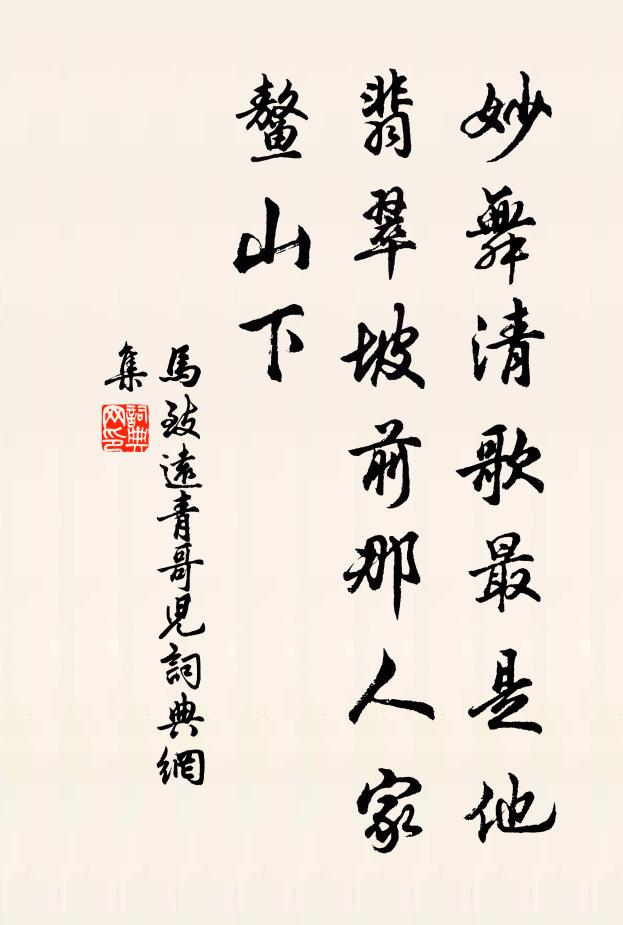 妙舞清歌最是他
翡翠坡前那人家
鳌山下
馬致遠青哥児詞典網
集
詞典
网印